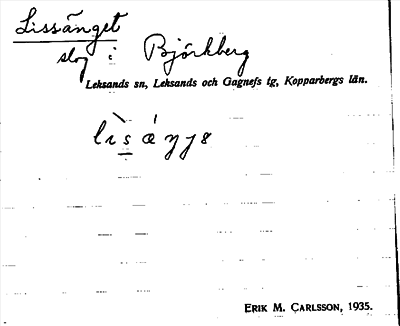 Lissänget
slog i Björkberg
Leksands sn, Leksands och Gagnefs tg, Kopparbergs län.
ERIK M. CARLSSON, 1935.